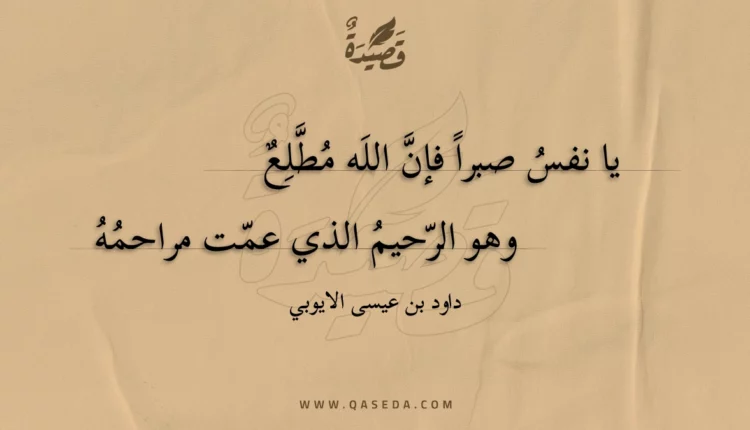 قَصِيْدَةٌ
يا نفسُ صبراً فإنَّ اللَه مُطَّلِعٌ
وهو الرّحيمُ الذي عمّت مراحمُهُ
داود بن عيسى الايوبي
WWW.QASEDA.COM